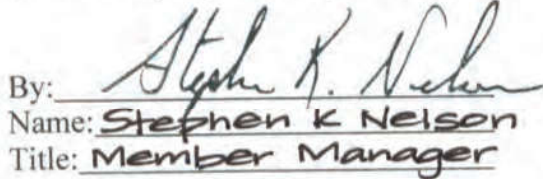 By: Stephen K. Nelson
Name: Stephen K Nelson
Title: Member Manager